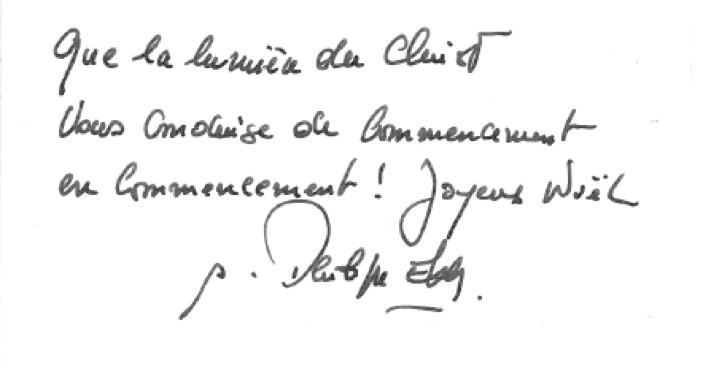 Que la lumière du Christ
Vous conduise de commencement
en commencement ! Joyeux Noël
p. Philippe